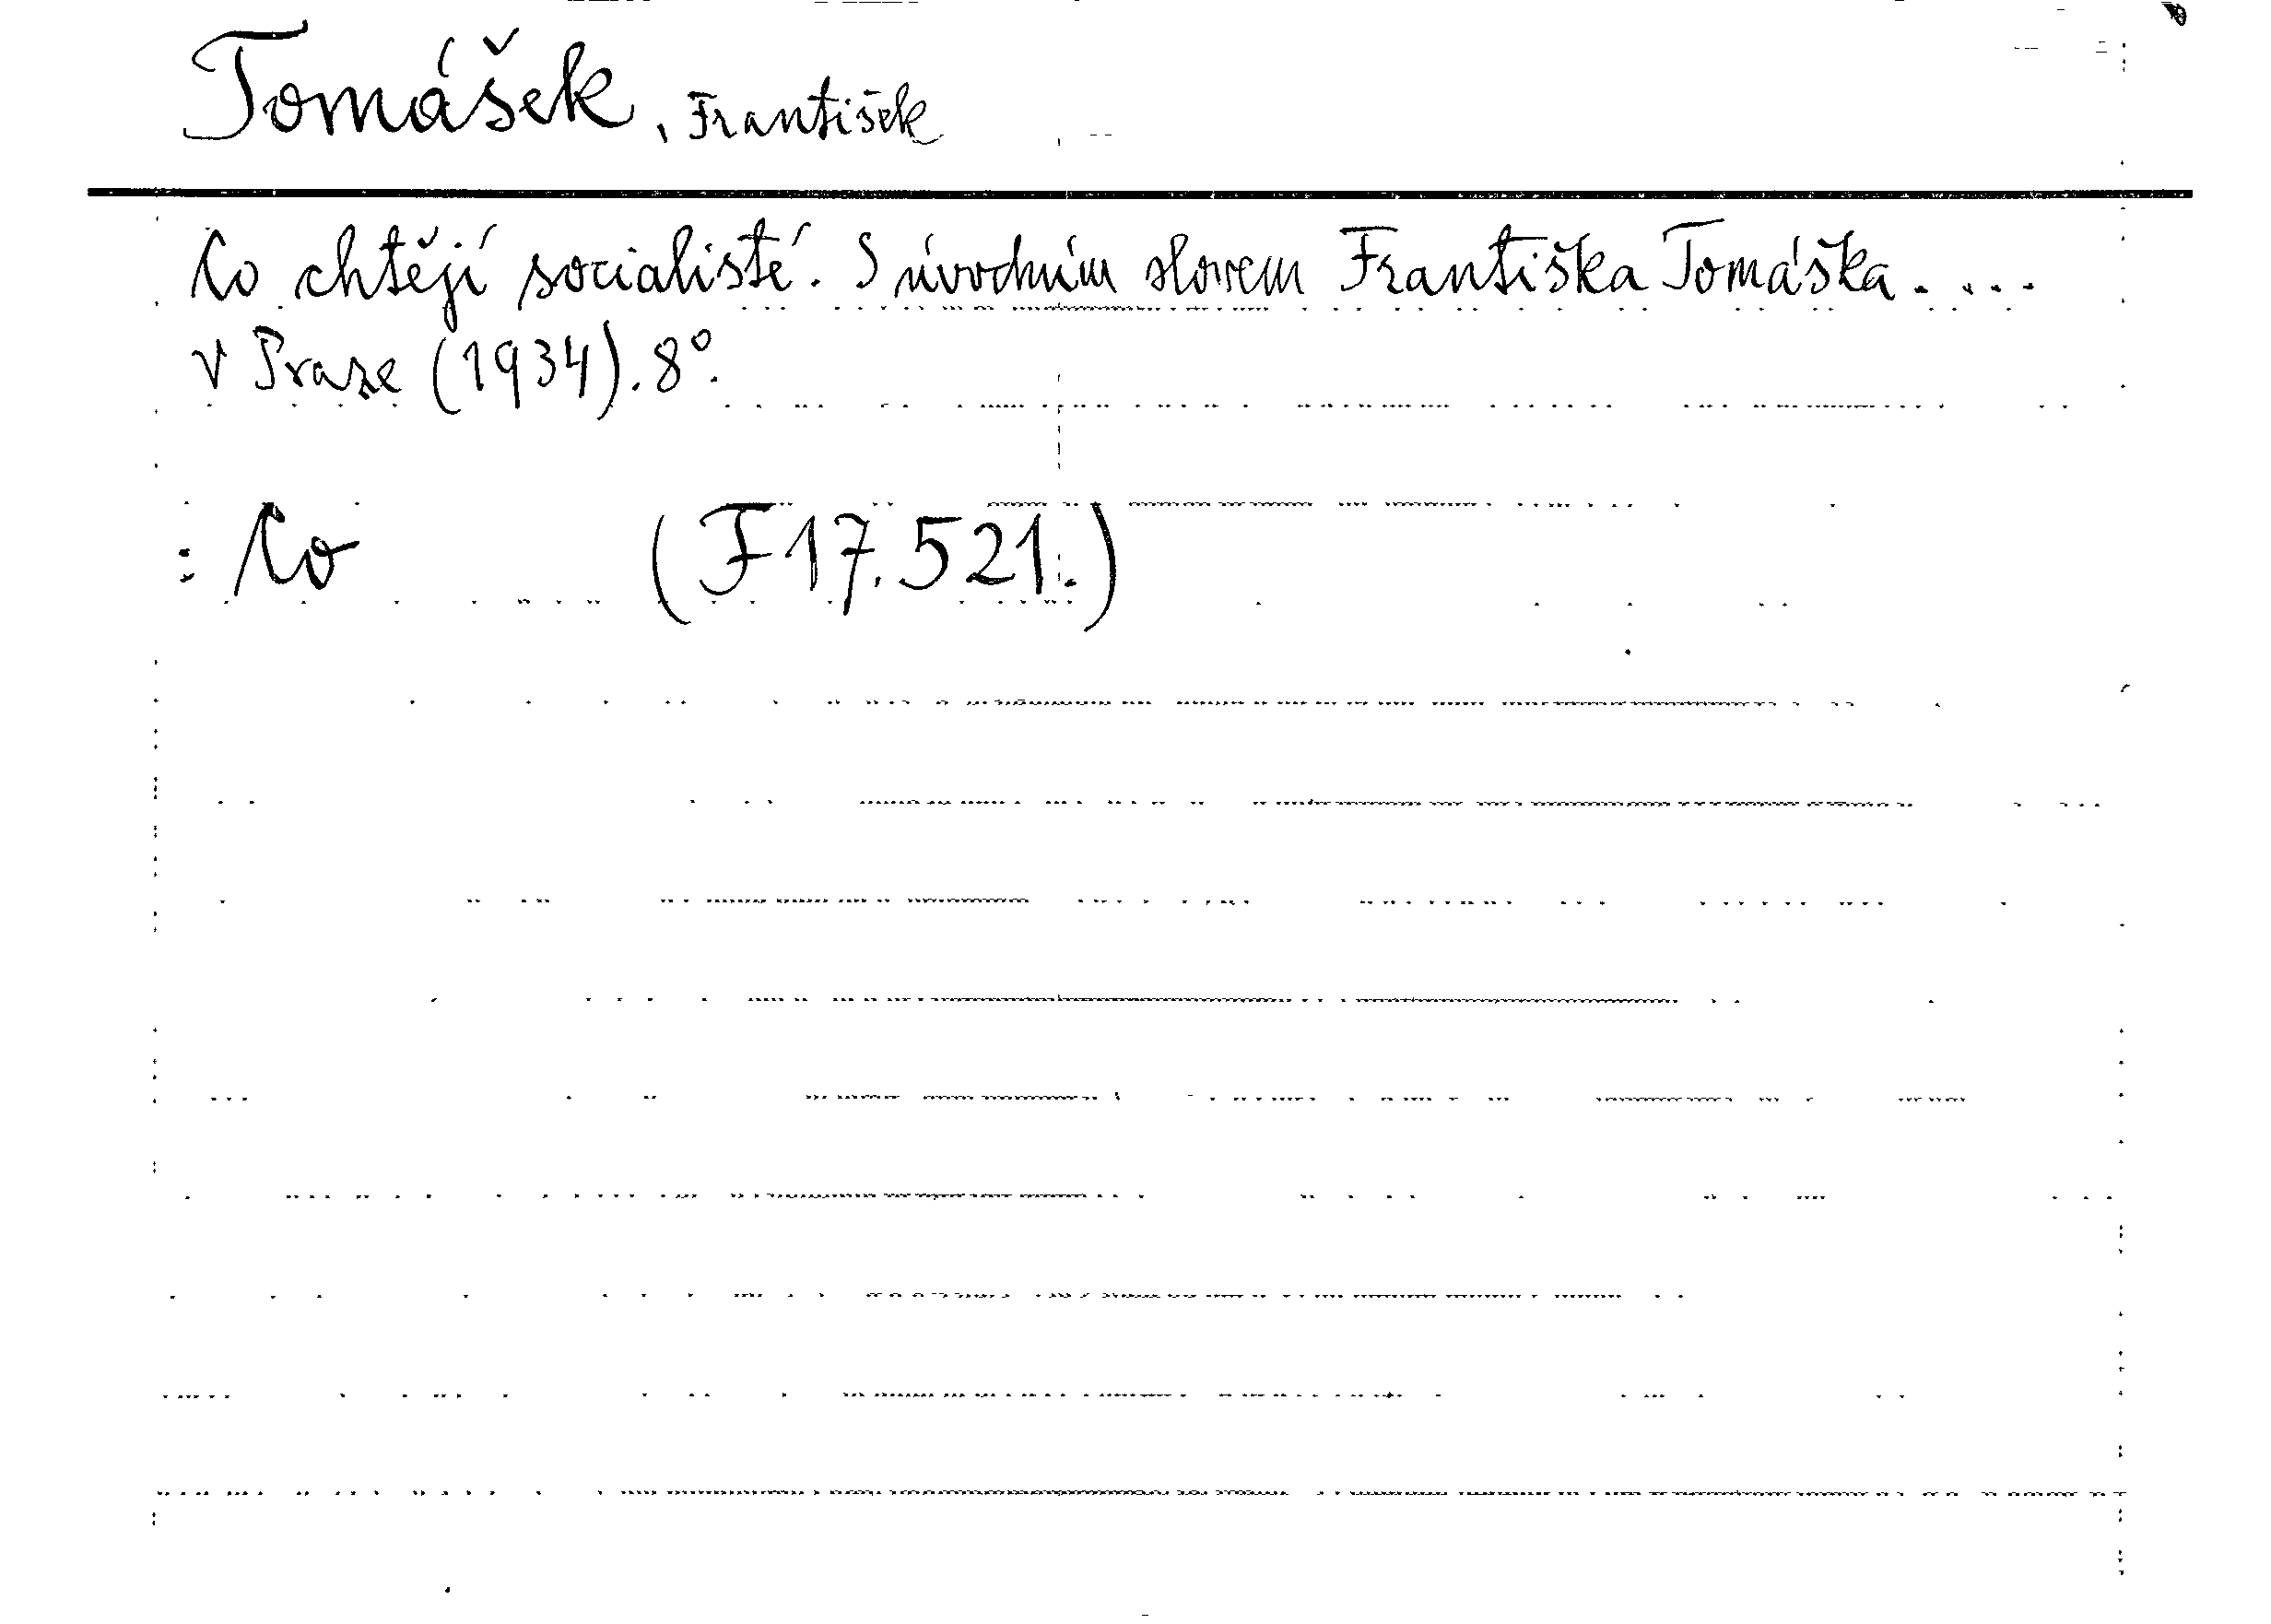 Tomášek, František
Co chtějí socialisté. S úvodním slovem Františka Tomáška. ...
V Praze (1934). 8°.
: Co (F 17.521.)